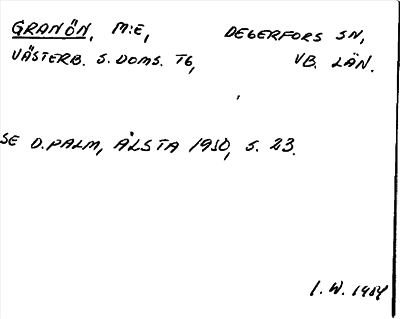 GRANÖN, M:E, DEGERFORS SN,
VÄSTERB. S. DOMS. TG, VB. LÄN.
SE D.PALM, ÅLSTA 1950, S. 23.
I. W. 1984